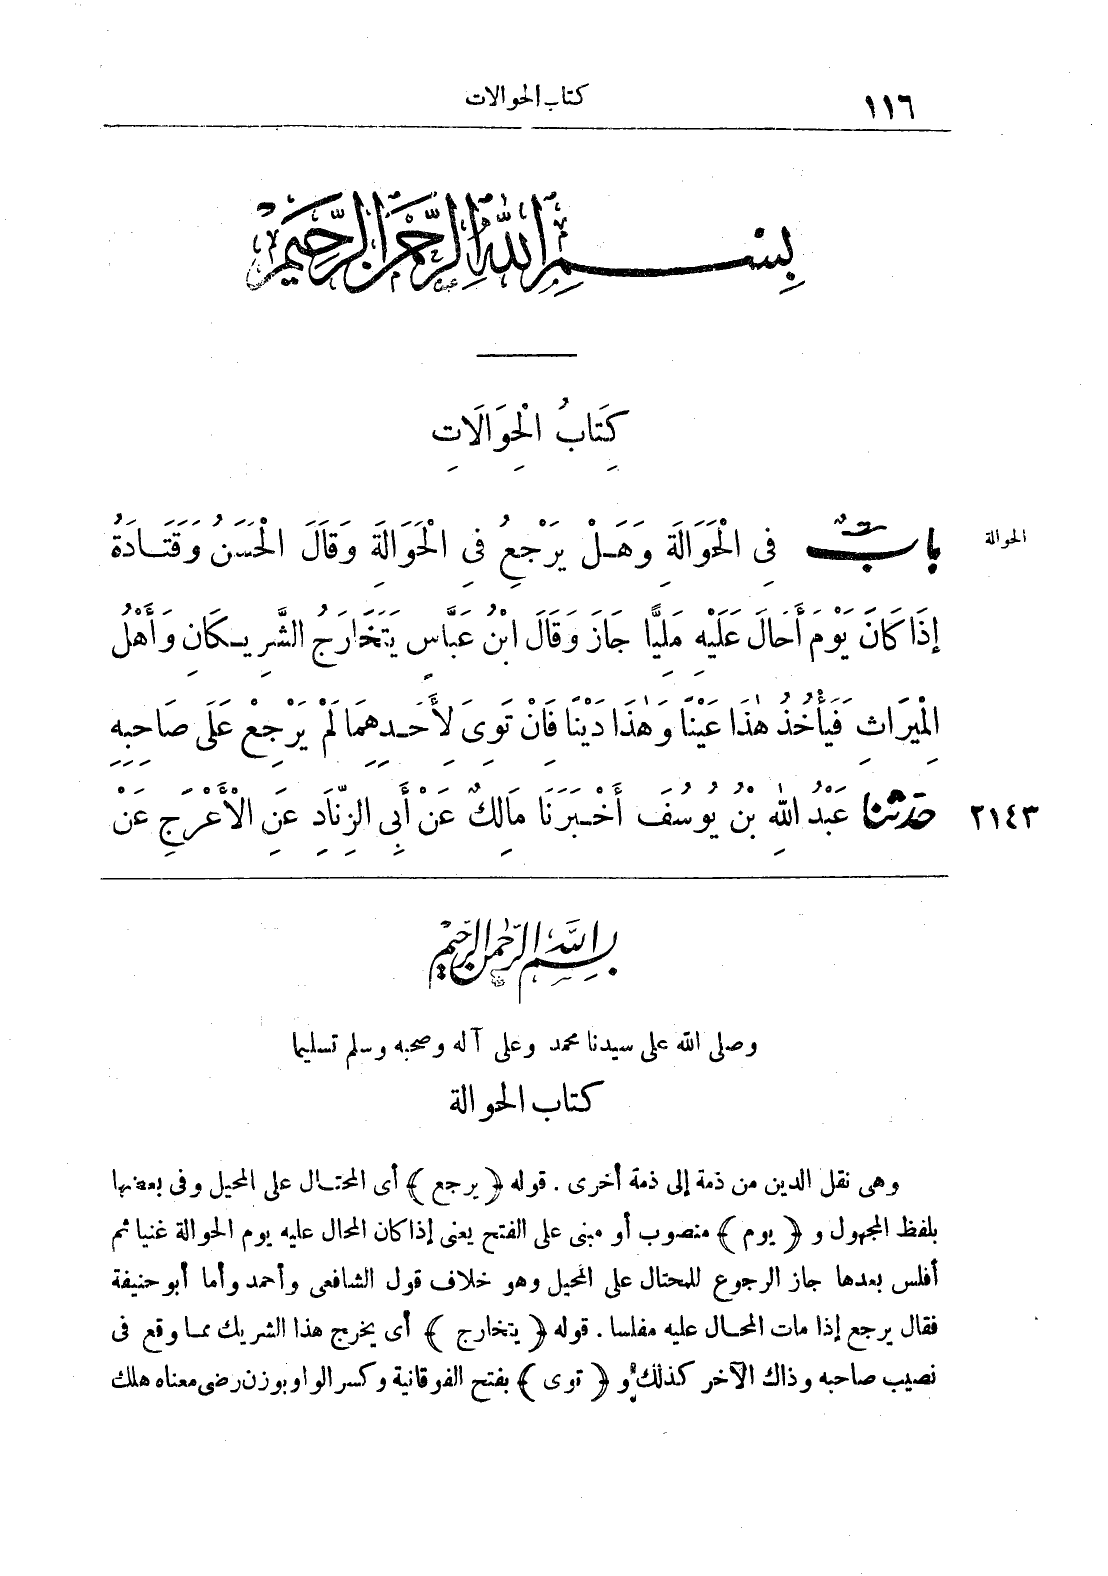 ١١٦
كتاب الحوالات
بِسْمِ اللهِ الرَّحْمَنِ الرَّحِيمِ
كِتَابُ الْحِوَالَاتِ
بابٌ فِى الْحَوَالَةِ وَهَلْ يَرْجِعُ فِى الْحَوَالَةِ وَقَالَ الْحَسَنُ وَقَتَادَةُ
الحوالة
إِذَا كَانَ يَوْمَ أَحَالَ عَلَيْهِ مَلِيًّا جَازَ وَقَالَ ابْنُ عَبَّاسٍ يَتَخَارَجُ الشَّرِيكَانِ وَأَهْلُ
الْمِيرَاثِ فَيَأْخُذُ هٰذَا عَيْنًا وَهٰذَا دَيْنًا فَانْ تَوِىَ لِأَحَدِهِمَا لَمْ يَرْجِعْ عَلَى صَاحِبِهِ
٢١٤٣ حَدَّثَنَا عَبْدُ اللهِ بْنُ يُوسُفَ أَخْبَرَنَا مَالِكٌ عَنْ أَبِى الزِّنَادِ عَنِ الْأَعْرَجِ عَنْ
بسم الله الرحمن الرحيم
وصلى الله على سيدنا محمد وعلى آله وصحبه وسلم تسليما
كتاب الحوالة
وهى نقل الدين من ذمة إلى ذمة أخرى . قوله ﴿ يرجع ﴾ أى المحتال على المحيل وفى بعضها
بلفظ المجهول و ﴿ يوم ﴾ منصوب أو مبنى على الفتح يعنى إذا كان المحال عليه يوم الحوالة غنيا ثم
أفلس بعدها جاز الرجوع للمحتال على المحيل وهو خلاف قول الشافعى وأحمد وأما أبو حنيفة
فقال يرجع إذا مات المحال عليه مفلسا . قوله ﴿ يتخارج ﴾ أى يخرج هذا الشريك مما وقع فى
نصيب صاحبه وذاك الآخر كذلك و ﴿ توى ﴾ بفتح الفوقانية وكسر الواو بوزن رضى معناه هلك